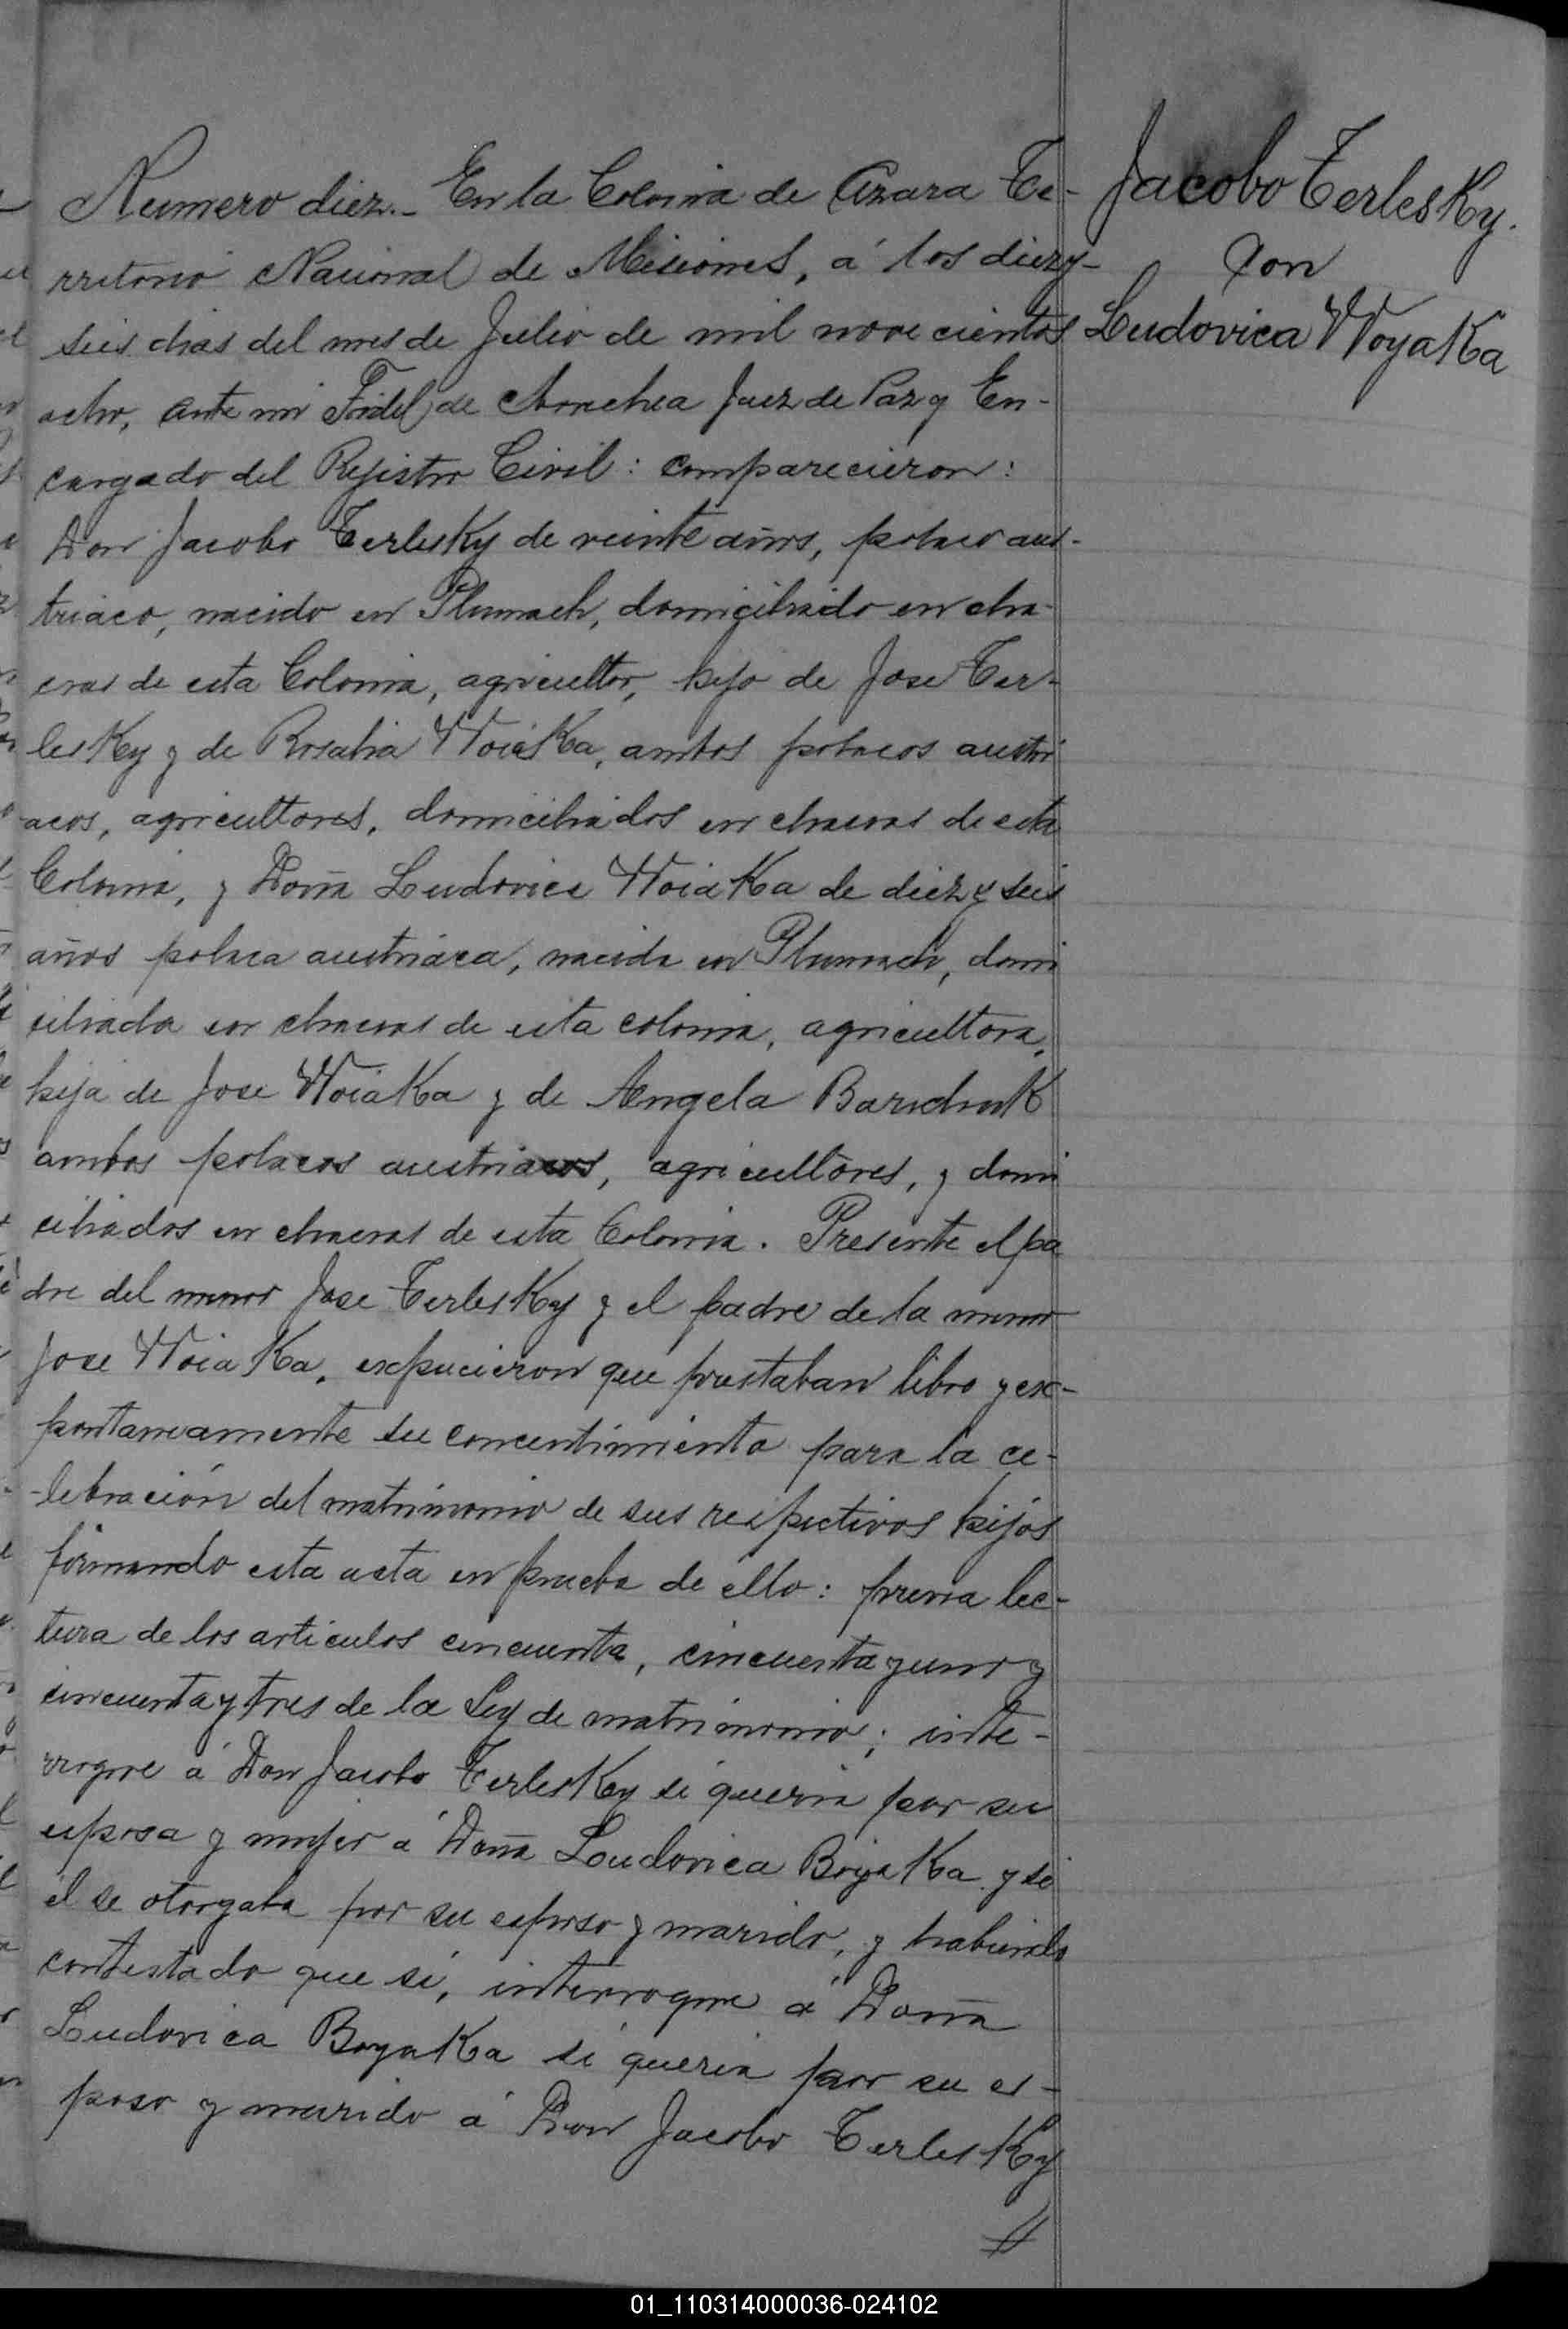 Numero diez.- En la Colonia de Azara Te-
rritorio Nacional de Misiones, á los diezy-
seis dias del mes de Julio de mil novecientos
ocho, ante mi Fidel de Juez de Paz y En-
cargado del Rejistro Civil: comparecieron:
Don Jacobo Terlesky de veinte años, polaco aus-
triaco, nacido en Tlumach, domiciliado en cha-
cras de esta Colonia, agricultor, hijo de Jose Ter-
lesKy y de Rosalia WoiaKa, ambos polacos austri
acos, agricultores, domiciliados en chacras de esta
Colonia, y Doña Ludovica WoiaKa de diez y seis
años polaca austriaca, nacida en Tlumach, domi
ciliada en chacras de esta colonia, agricultora,
hija de Jose WoiaKa y de Angela
ambos polacos austriacos, agricultores, y domi
ciliados en chacras de esta Colonia. Presente el pa
dre del menor Jose TerlesKy y el padre de la menor
Jose WoiaKa, expucieron que prestaban libro y ex-
pontaneamente su concentimiento para la ce-
-lebración del matrimonio de sus respectivos hijos
firmando esta acta en prueba de ello: previa lec-
tura de los articulos cincuenta, cincuenta y uno y
cincuenta y tres de la Ley de matrimonio; inte-
rrogue á Don Jacobo TerlesKy si queria por su
esposa y mujer á Doña Ludovica BoyaKa y si
el se otorgaba por su esposo y marido, y habiendo
contestado que si, interrogue á Doña
Ludovica BoyaKa si queria por su es-
poso y marido á Don Jacobo TerlesKy
//
Jacobo TerlesKy.
con
Ludovica WoyaKa
01_110314000036-024102